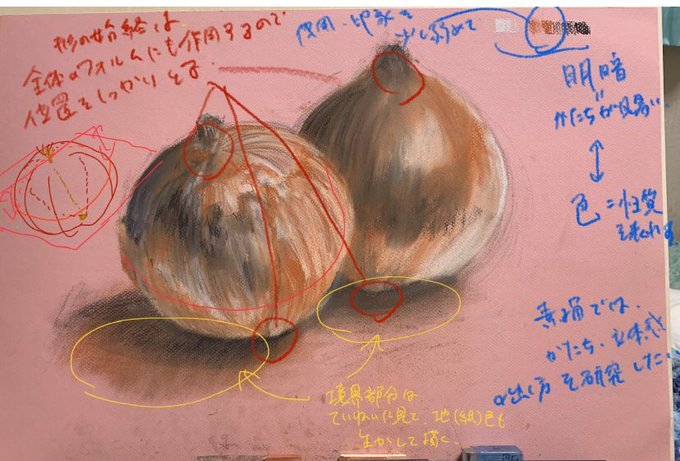 形の始終は
全体のフォルムにも作用するので
位置をしっかりとる。
少し弱めて
明暗
かたちが
色＝性質
素描では、
かたち、立体感
の出し方を研究した。
境界部分は
ていねいに見て、地(紙)色も
生かして描く。